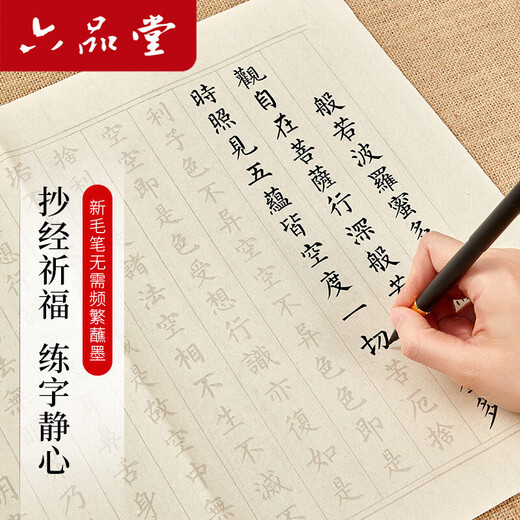 六品堂
抄经祈福 练字静心
新毛笔无需频繁蘸墨
般若波羅蜜多
觀自在菩薩行深般若
多
時照見五蘊皆空度一切
苦厄捨
利子色不异空空不异色色即是
空空即是色受想行識亦復如是
捨利子是諸法空相不生不滅
垢
是故空中
耳鼻
身
乃